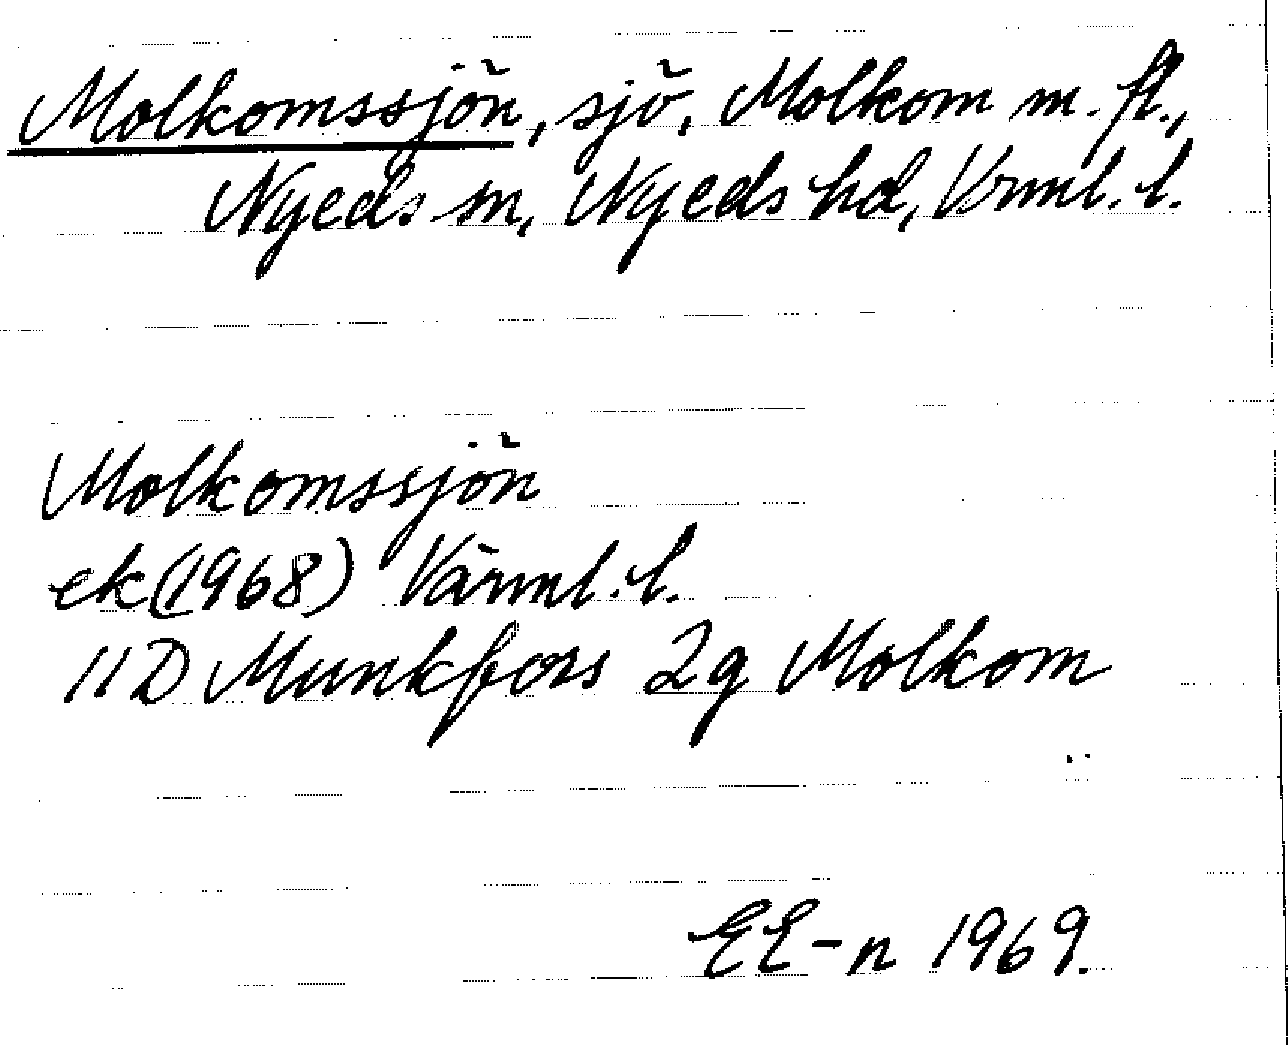 Molkomssjön, sjö, Molkom m. fl.,
Nyeds sn, Nyeds hd, Vrml. l.
Molkomssjön
ek (1968) Värml. l.
11D Munkfors 2g Molkom
EE-n 1969.